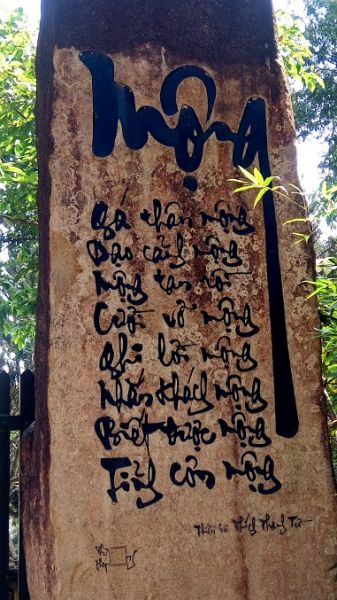 Mộng
Gá thân mộng
Dạo cảnh mộng
Mộng tan rồi
Cười vỡ mộng
Ghi lời mộng
Nhắn khách mộng
Biết được mộng
Tỉnh cơn mộng
Thiền Sư Thích Thanh Từ